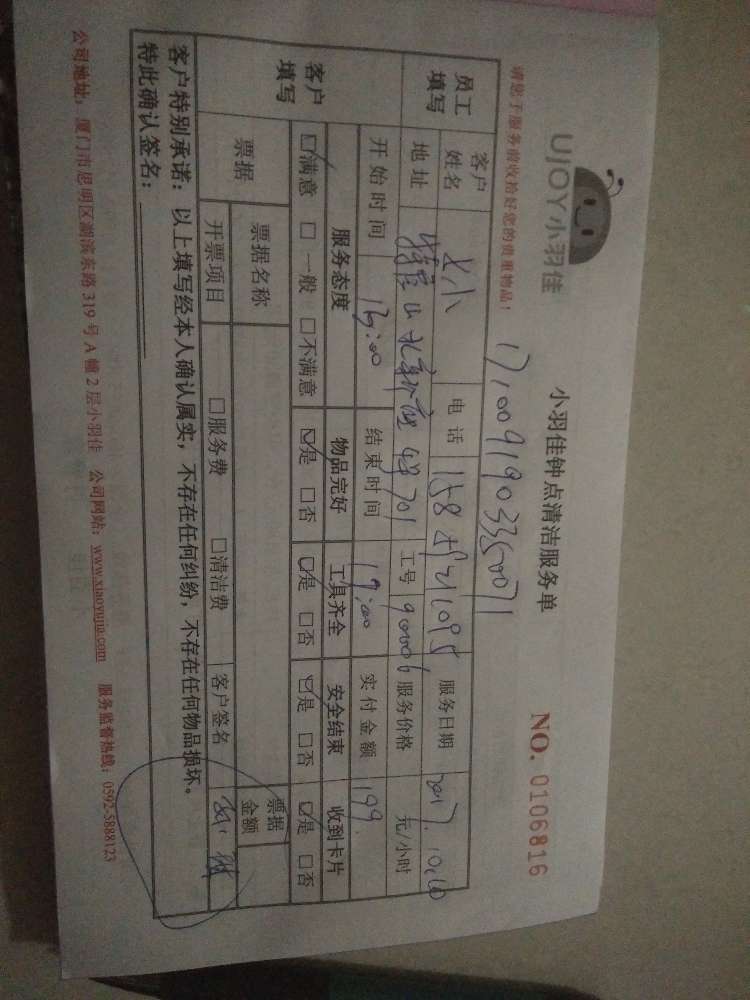 UJOY小羽佳
小羽佳钟点清洁服务单
NO. 0106816
请您于服务前收拾好您的贵重物品！
1710091903350071
员工填写 客户姓名 电话 服务日期 2017.10.10
地址 701 工号 900006 服务价格 元/小时
开始时间 结束时间 19:00 实付金额 199
客户填写 服务态度 物品完好 工具齐全 安全结束 收到卡片
☑满意 □一般 □不满意 ☑是 □否 ☑是 □否 ☑是 □否 ☑是 □否
票据 票据名称 票据金额
开票项目 □服务费 □清洁费 客户签名
客户特别承诺：以上填写经本人确认属实，不存在任何纠纷，不存在任何物品损坏。
特此确认签名：
公司地址：厦门市思明区湖滨东路319号A幢2层小羽佳 公司网站：www.xiaoyujia.com 服务监督热线：0592-5888123